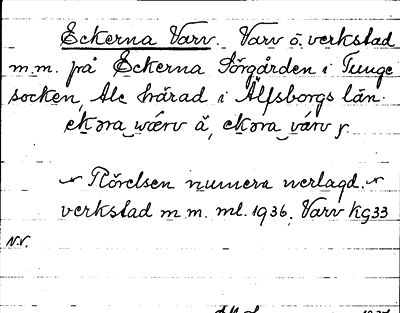 Eckerna Varv. Varv o. verkstad
m.m. på Eckerna Sörgården i Tunge
socken, Ale härad i Älfsborgs län.
ekəra wærv ä, ekəra várv y.
Rörelsen numera nerlagd.
verkstad m.m. ml. 1936, Varv kg 33
N.V.